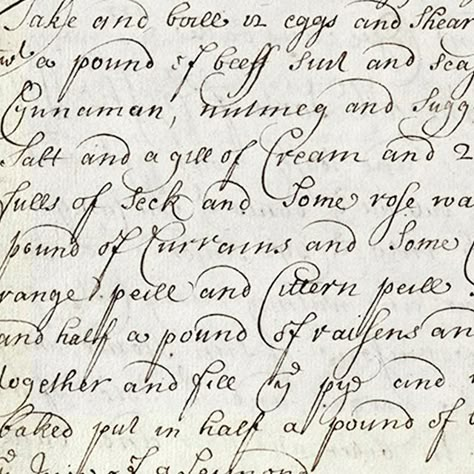 Take and boill 12 eggs and Shear
wt a pound of beeff suit and sea
Cynnaman, nutmeg and sugg
Salt and a gill of Cream and 2
fulls of Seck and Some rose wa
pound of Currains and Some
range peill and Cittern peill
and half a pound of raisens an
together and fill ye pye and
baked put in half a pound of